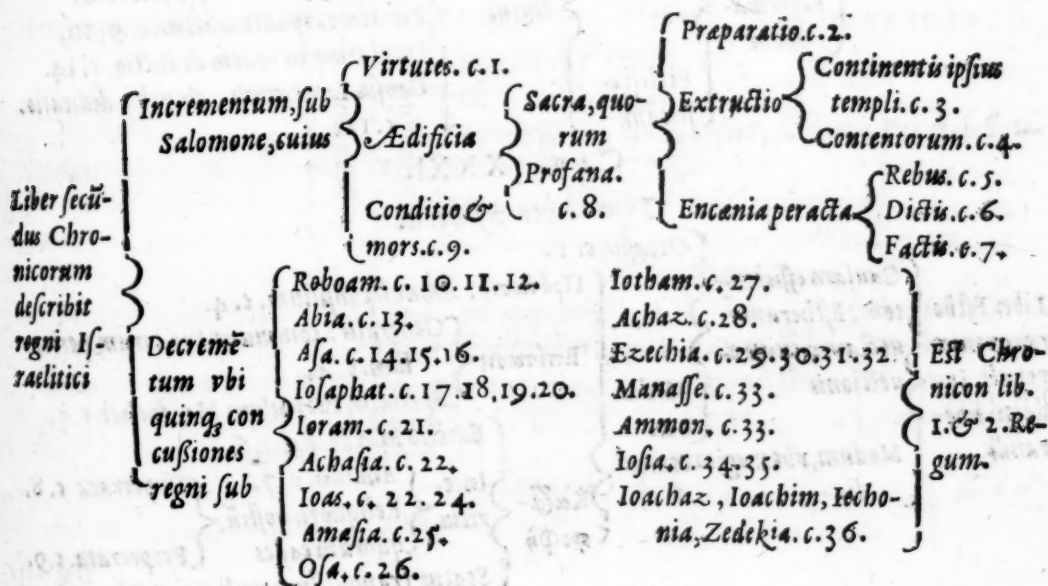 Liber secũ-
dus Chro-
nicorum
describit
regni Is-
raelitici
Incrementum, sub
Salomone, cuius
Virtutes. c. 1.
Ædificia
Sacra, quo-
rum
Præparatio. c. 2.
Extructio
Continentis ipsius
templi. c. 3.
Contentorum. c. 4.
Encænia peracta
Rebus. c. 5.
Dictis. c. 6.
Factis. c. 7.
Profana.
c. 8.
Conditio &
mors. c. 9.
Decremẽ
tum vbi
quinq; con
cussiones
regni sub
Roboam. c. 10. 11. 12.
Abia. c. 13.
Asa. c. 14. 15. 16.
Iosaphat. c. 17. 18. 19. 20.
Ioram. c. 21.
Achasia. c. 22.
Ioas. c. 22. 24.
Amasia. c. 25.
Osa. c. 26.
Iotham. c. 27.
Achaz. c. 28.
Ezechia. c. 29. 30. 31. 32
Manasse. c. 33.
Ammon. c. 33.
Iosia. c. 34. 35.
Ioachaz, Ioachim, Iecho-
nia, Zedekia. c. 36.
Est Chro-
nicon lib.
1. & 2. Re-
gum.